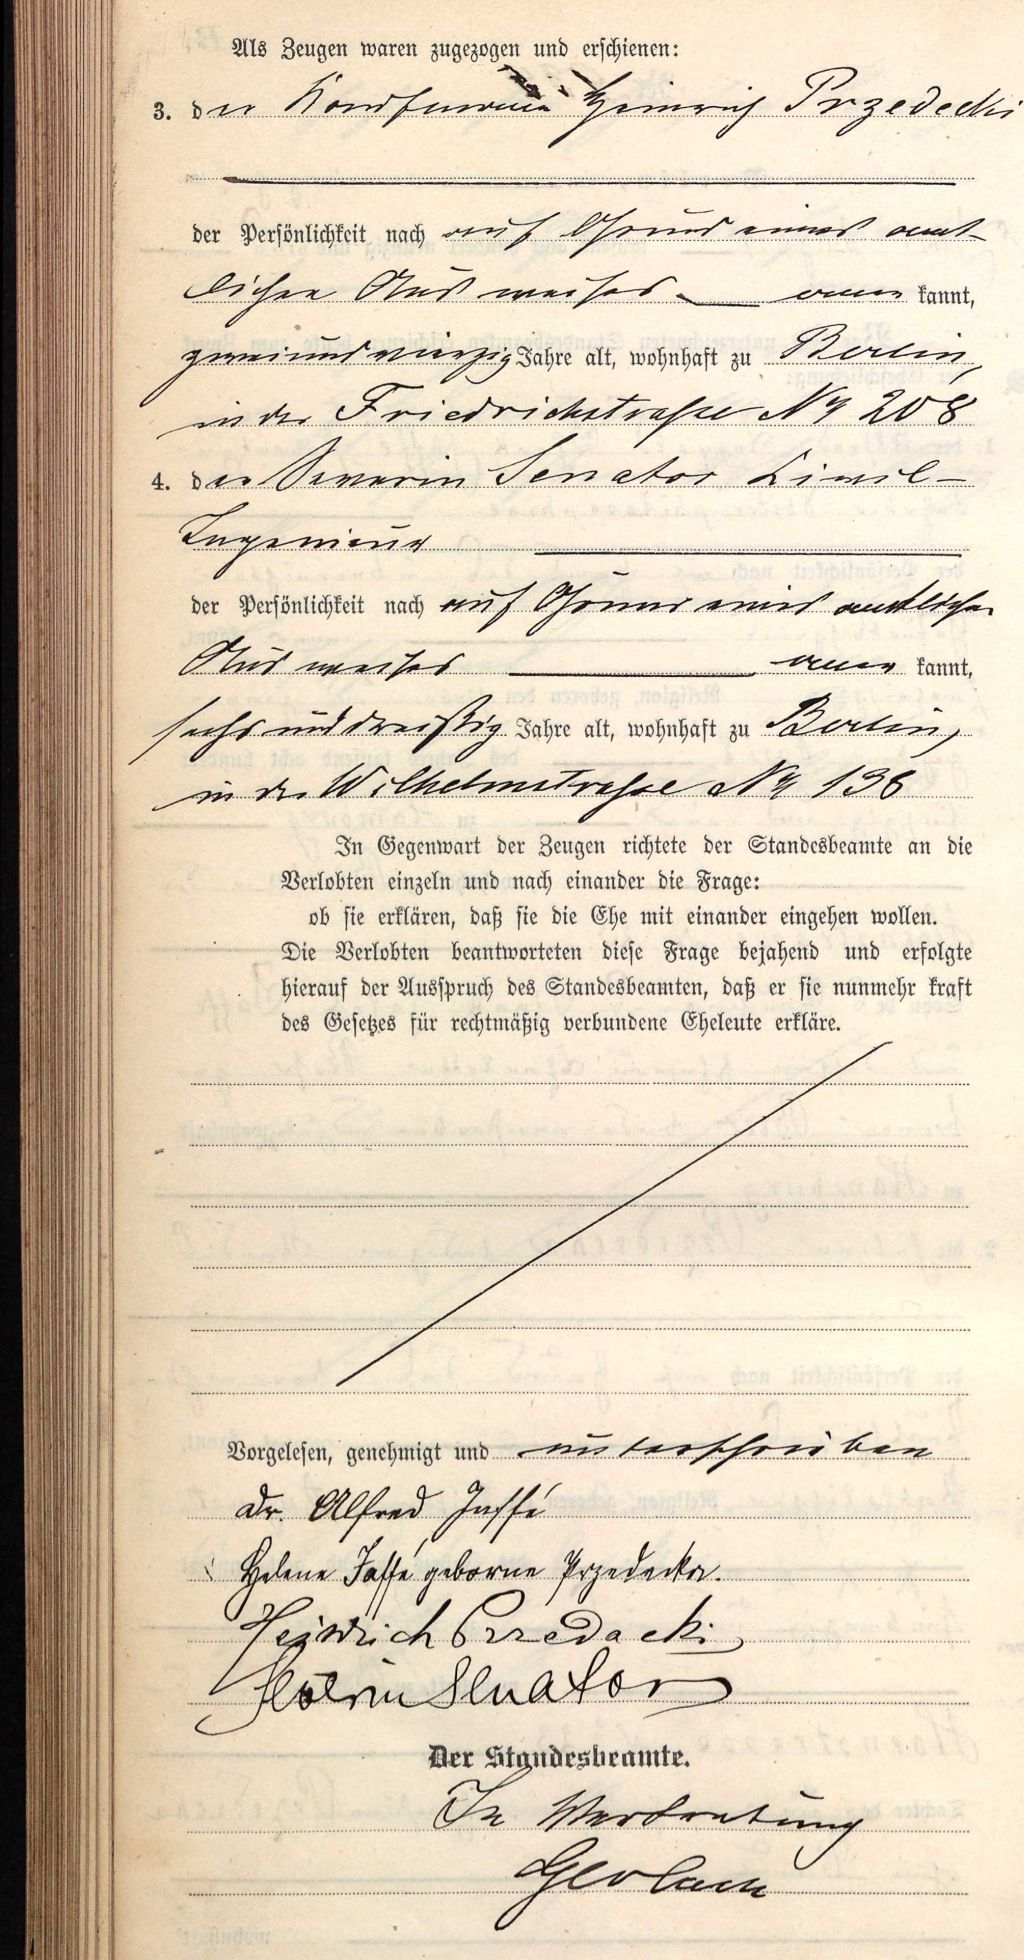 Als Zeugen waren zugezogen und erschienen:
3. der Kaufmann Heinrich Przedecki
der Persönlichkeit nach auf Grund eines amt-
lichen Ausweises aner kannt,
zweiundvierzig Jahre alt, wohnhaft zu Berlin,
in der Friedrichstraße Nr 208
4. der Severin Senator Civil-
Ingenieur
der Persönlichkeit nach auf Grund eines amtlichen
Ausweises aner kannt,
sechsunddreißig Jahre alt, wohnhaft zu Berlin,
in der Wilhelmstraße Nr 138
In Gegenwart der Zeugen richtete der Standesbeamte an die
Verlobten einzeln und nach einander die Frage:
ob sie erklären, daß sie die Ehe mit einander eingehen wollen.
Die Verlobten beantworteten diese Frage bejahend und erfolgte
hierauf der Ausspruch des Standesbeamten, daß er sie nunmehr kraft
des Gesetzes für rechtmäßig verbundene Eheleute erkläre.
Vorgelesen, genehmigt und unterschrieben
Dr. Alfred Jaffé
Helene Jaffé geborne Przedecka.
Heinrich Przedecki
Severin Senator
Der Standesbeamte.
In Vertretung